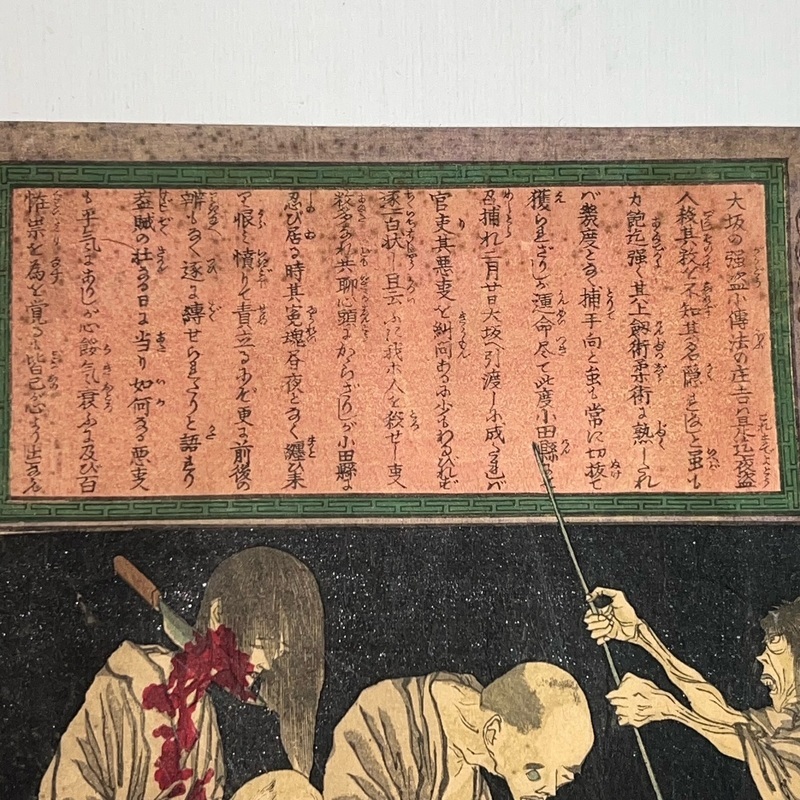 大坂の強盗小傳法の庄吉ハ是迄夜盗
人殺其数を不知其名隠れなしと虽も
力飽迄強く其上劔術柔術に熟したれ
バ幾度となく捕手向と虽も常に切抜て
獲られざりしが運命尽て此度小田縣に
召捕れ二月廿日大坂へ引渡しに成たれバ
官吏其悪事を糾問あるに少もわるびれず
逐一白状し且云ふに我ホ人を殺せし事
数多あれ共聊心頭にかゝらざりしが小田縣に
忍び居る時其寃魂昼夜となく纏ひ来
て恨ミ憤りて責立るにぞ更に前後の
辨もなく遂に縛せられたりと語れり
盗賊の壮なる日に当り如何なる悪事
も平気にありしが心餒気衰ふに及び百
怪祟を為を覚るハ皆己が心より出るなり